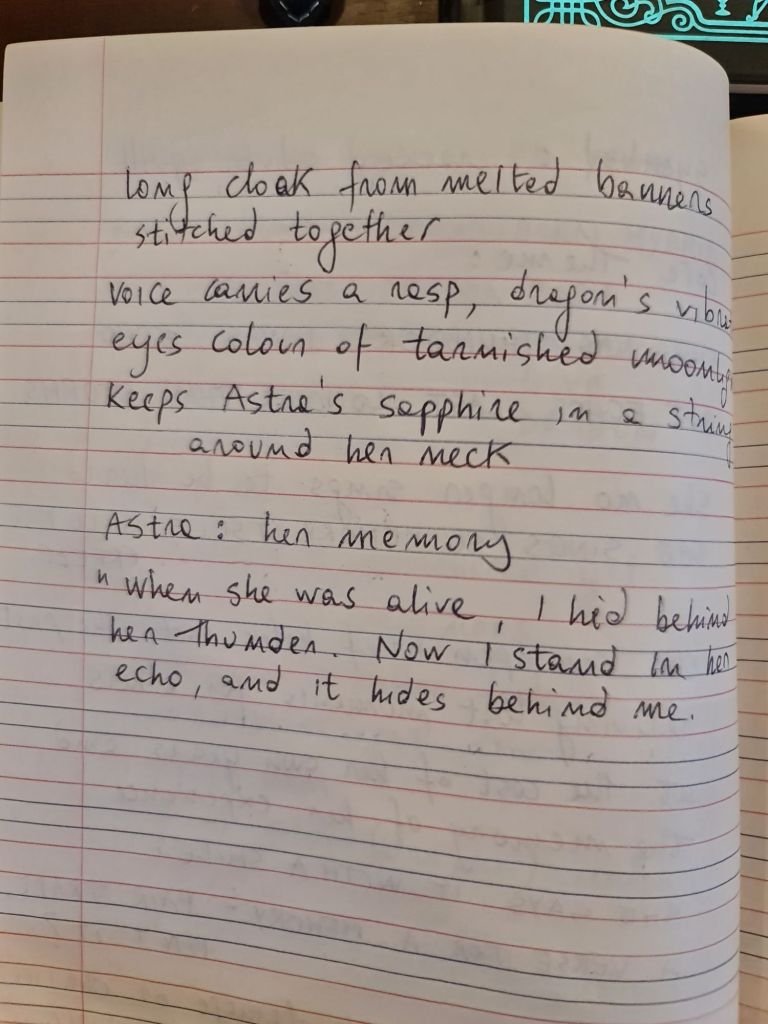 long cloak from melted banners
stitched together
voice carries a rasp, dragon's
eyes colour of tarnished
keeps Astre's sapphire in a string
around her neck
Astre : her memory
"when she was alive, I hid behind
her thunder. Now I stand in her
echo, and it hides behind me.